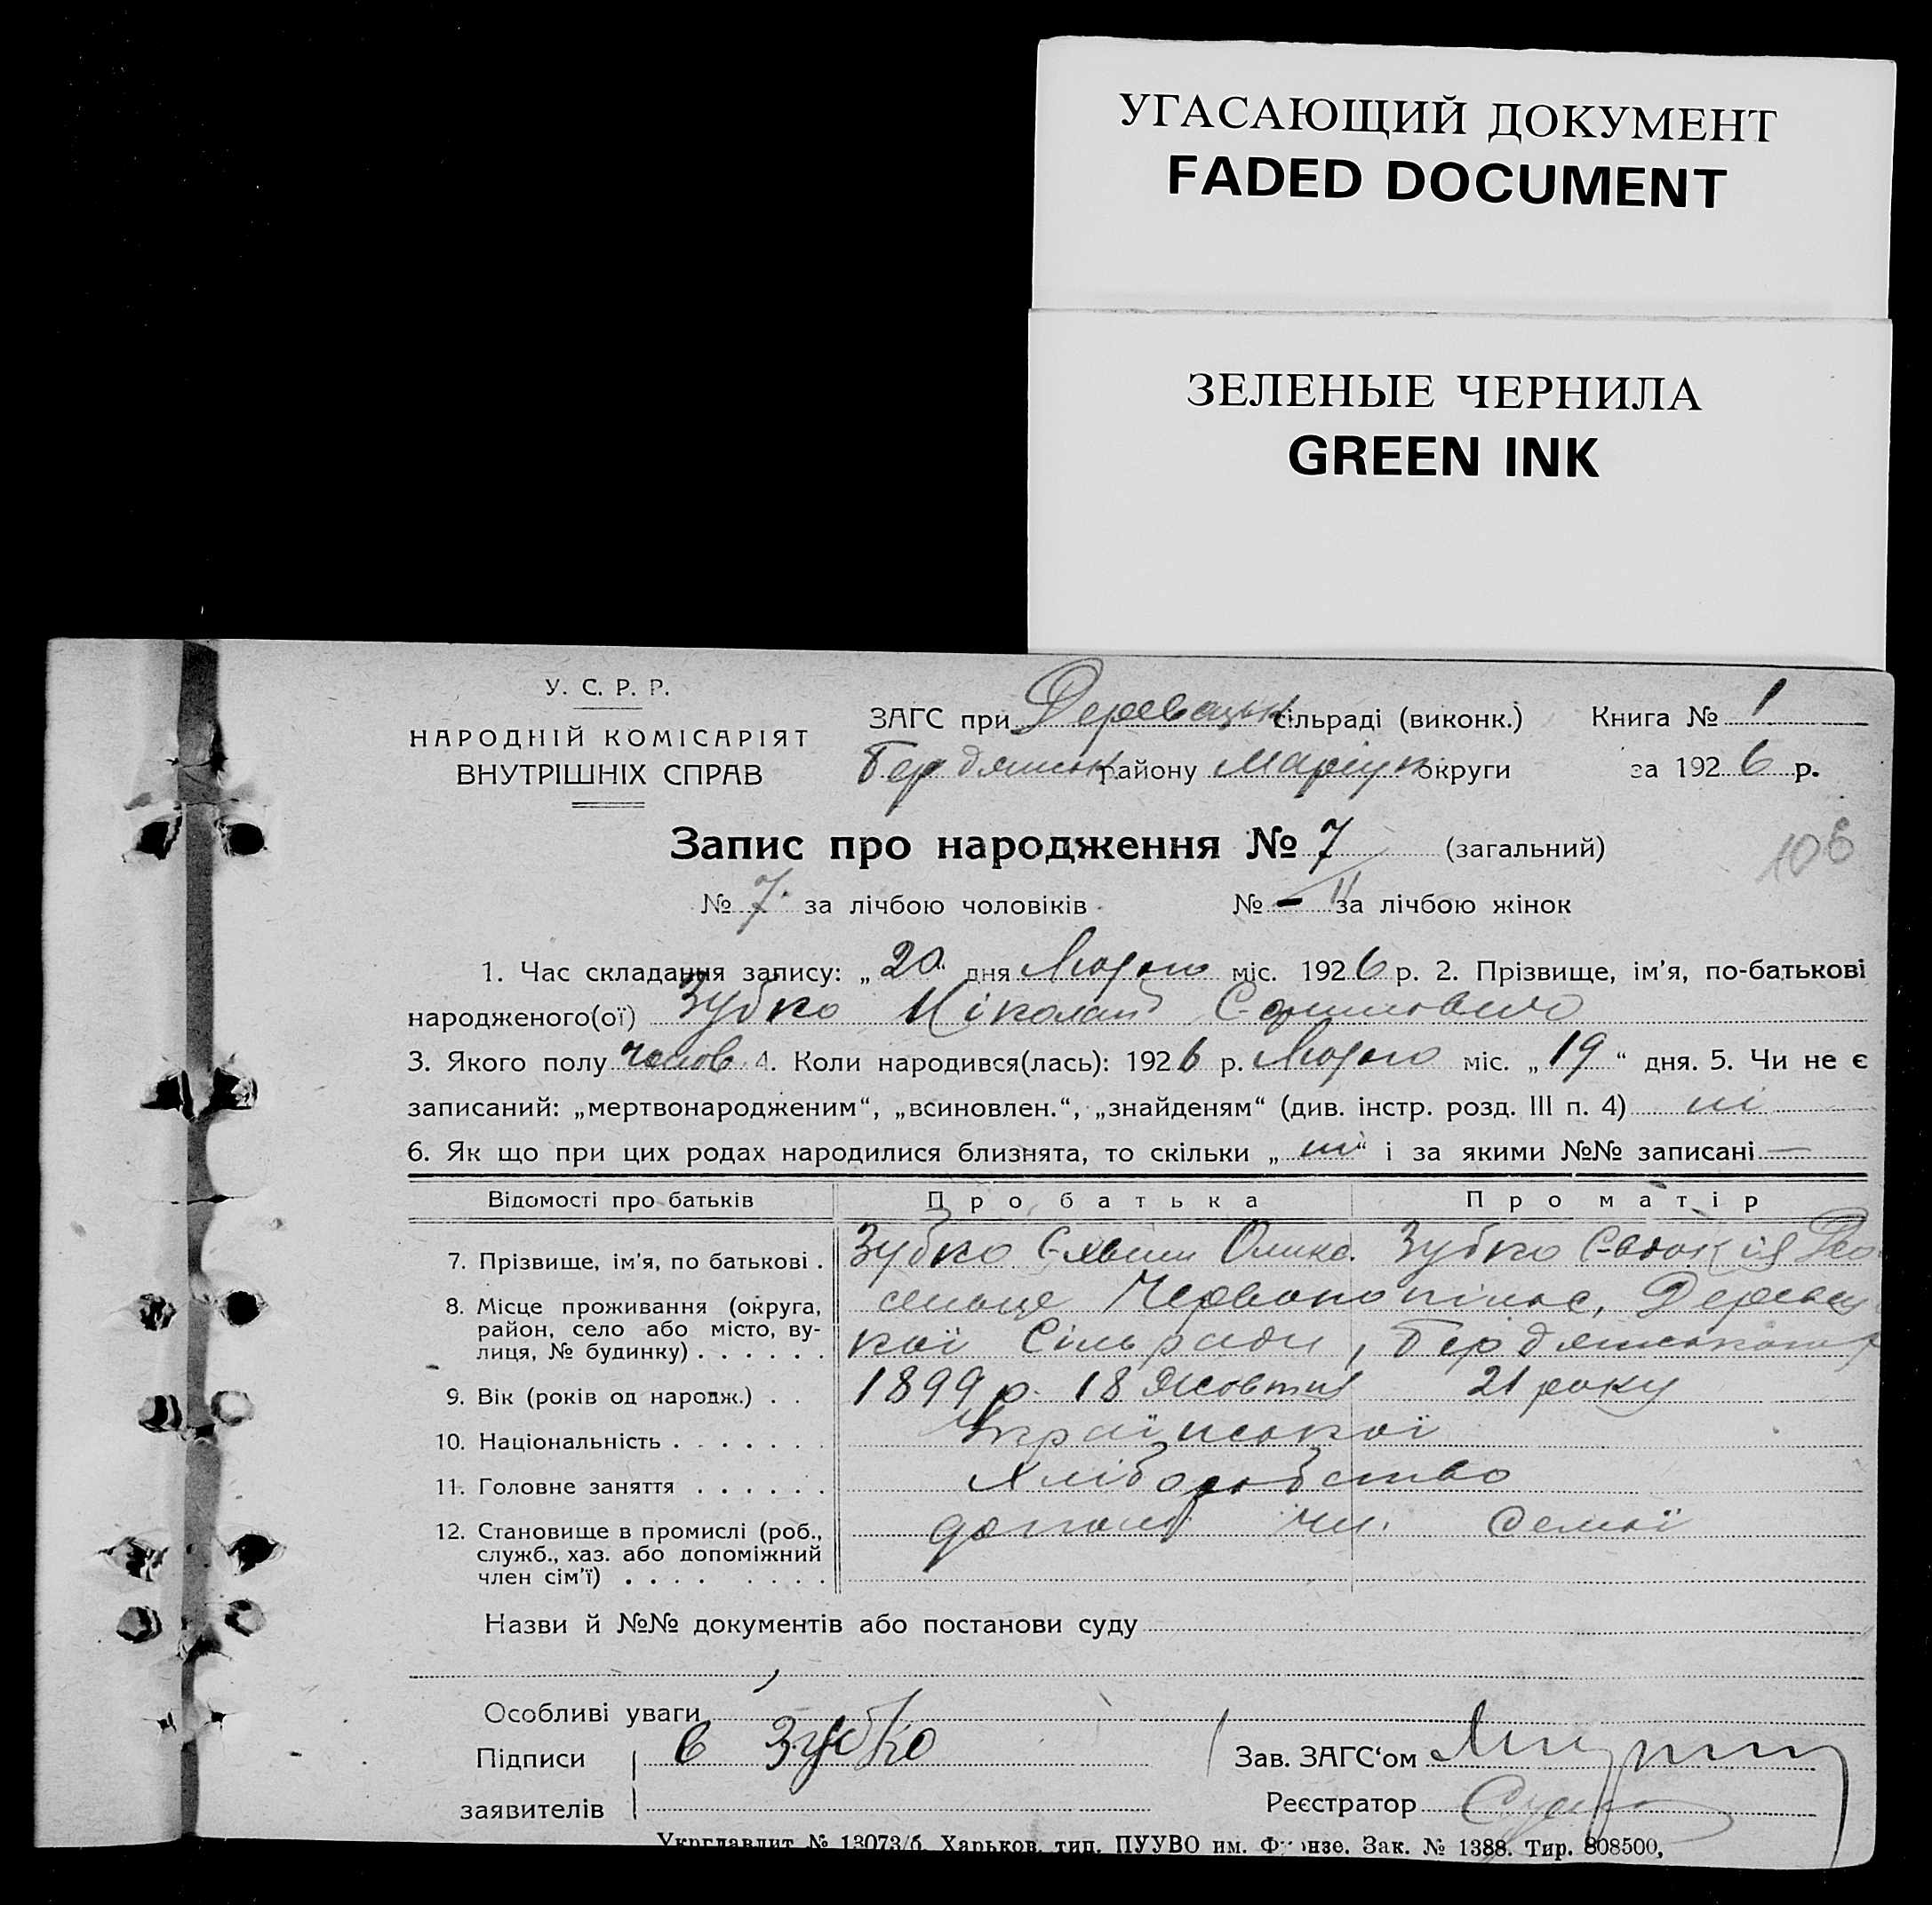 УГАСАЮЩИЙ ДОКУМЕНТ
FADED DOCUMENT
ЗЕЛЕНЫЕ ЧЕРНИЛА
GREEN INK
У. С. Р. Р.
НАРОДНІЙ КОМІСАРІЯТ
ВНУТРІШНІХ СПРАВ
ЗАГС при Деревецьк сільраді (виконк.) Книга № 1
Бердянськ району Маріуп округи за 1926 р.
Запис про народження № 7 (загальний)
106
№ 7 за лічбою чоловіків № — за лічбою жінок
1. Час складання запису: „20“ дня Лютого міс. 1926 р. 2. Прізвище, ім'я, по-батькові
народженого(ої) Зубко Ніколай
3. Якого полу чолов. 4. Коли народився(лась): 1926 р. Лютого міс. „19“ дня. 5. Чи не є
записаний: „мертвонародженим“, „всиновлен.“, „знайденям“ (див. інстр. розд. III п. 4) ні
6. Як що при цих родах народилися близнята, то скільки „ні“ і за якими №№ записані —
Відомості про батьків Про батька Про матір
7. Прізвище, ім'я, по батькові . Зубко Зубко
8. Місце проживання (округа, район, село або місто, вулиця, № будинку) . . . . . . селище Червонопілля,
кої Сільради, Бердянського р
9. Вік (років од народж.) . . 1899 р. 18 Жовтня 21 року
10. Національність . . . . . . . Української
11. Головне заняття . . . . . . Хліборобство
12. Становище в промислі (роб., служб., хаз. або допоміжний член сім'ї) . . . . . . . . допом чл. семьї
Назви й №№ документів або постанови суду
Особливі уваги
Підписи Зубко Зав. ЗАГС'ом
заявителів Реєстратор
Укрглавлит № 13073/б. Харьков, тип. ПУУВО им. Фрунзе. Зак. № 1388. Тир. 808500,